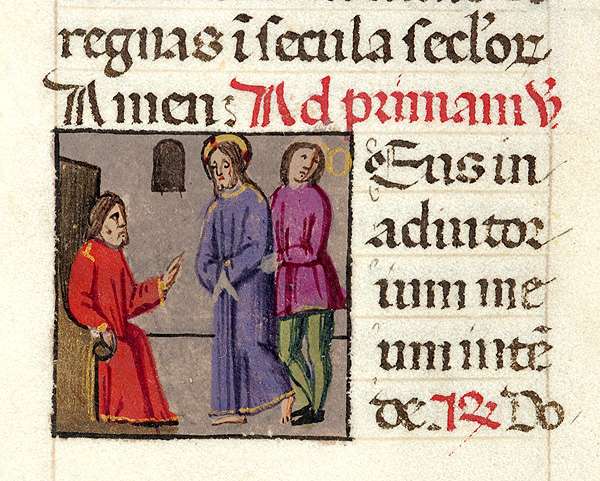 regnas ī secula seclor
Amen: Ad primam ℣
Deus in
adiutor
ium me
um intē
de ℟ Do